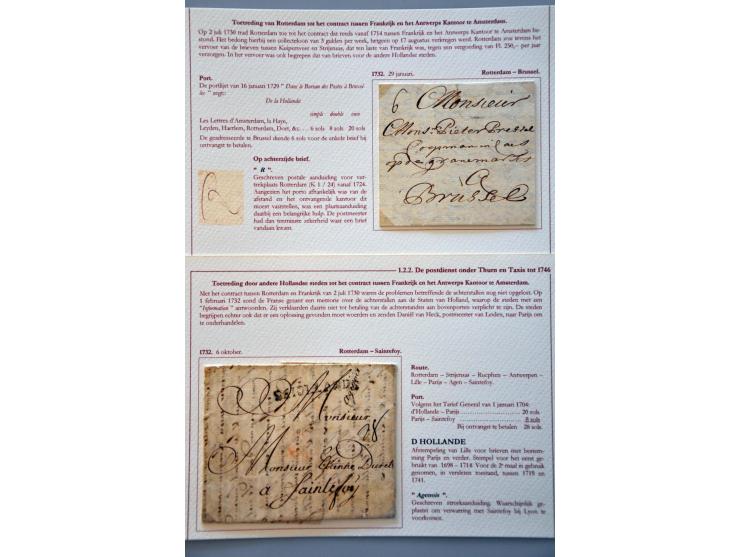 Toetreding van Rotterdam tot het contract tussen Frankrijk en het Antwerps Kantoor te Amsterdam.
Op 2 juli 1730 trad Rotterdam toe tot het contract dat reeds vanaf 1714 tussen Frankrijk en het Antwerps Kantoor te Amsterdam be-
stond. Het bedong hierbij een collecteloon van 3 gulden per week, hetgeen op 17 augustus verkregen werd. Rotterdam zou tevens het
vervoer van de brieven tussen Kuipersveer en Strijensas, dat ten laste van Frankrijk was, tegen een vergoeding van Fl. 250,- per jaar
verzorgen. In het vervoer was ook begrepen dat van brieven voor de andere Hollandse steden.
1732. 29 januari. Rotterdam – Brussel.
Port.
De portlijst van 16 januari 1729 " Dans le Bureau des Postes à Bruxel-
les " zegt:
De la Hollande
simple double once
Les Lettres d'Amsterdam, la Haye,
Leyden, Haerlem, Rotterdam, Dort, &c. . . 6 sols 8 sols 20 sols
De geadresseerde te Brussel diende 6 sols voor de enkele brief bij
ontvangst te betalen.
6 Monsieur
Mons: Pieter Pressel
Coopman in Laes
op de granemarkt
a
Brussel
Op achterzijde brief.
" R ".
Geschreven postale aanduiding voor ver-
trekplaats Rotterdam (K 1 / 24) vanaf 1724.
Aangezien het porto afhankelijk was van de
afstand en het ontvangende kantoor dit
moest vaststellen, was een plaatsaanduiding
daarbij een belangrijke hulp. De postmeester
had dan tenminste zekerheid waar een brief
vandaan kwam.
1.2.2. De postdienst onder Thurn en Taxis tot 1746
Toetreding door andere Hollandse steden tot het contract tussen Frankrijk en het Antwerps Kantoor te Amsterdam.
Met het contract tussen Rotterdam en Frankrijk van 2 juli 1730 waren de problemen betreffende de achterstallen nog niet opgelost. Op
1 februari 1732 zond de Franse gezant een memorie over de achterstallen aan de Staten van Holland, waarop de steden met een
"Information" antwoorden. Zij verklaarden daarin niet tot betaling van de achterstanden aan loonposten verplicht te zijn. De steden
begrijpen echter ook dat er een oplossing gevonden moet worden en zenden Daniël van Heck, postmeester van Leiden, naar Parijs om
te onderhandelen.
1732. 6 oktober. Rotterdam – Saintefoy.
Monsieur
28
Monsieur Etienne Duret
a Saintefoy
Route.
Rotterdam – Strijensas – Rucphen – Antwerpen –
Lille – Parijs – Agen – Saintefoy.
Port.
Volgens het Tarief General van 1 januari 1704:
d'Hollande – Parijs . . . . . . . . . . 20 sols.
Parijs – Saintefoy . . . . . . . . . . 8 sols
Bij ontvangst te betalen 28 sols.
D HOLLANDE
Afstempeling van Lille voor brieven met bestem-
ming Parijs en verder. Stempel voor het eerst ge-
bruikt van 1698 – 1714. Voor de 2e maal in gebruik
genomen, in versleten toestand, tussen 1718 en
1741.
" Agenois ".
Geschreven streekaanduiding. Waarschijnlijk ge-
plaatst om verwarring met Saintefoy bij Lyon te
voorkomen.